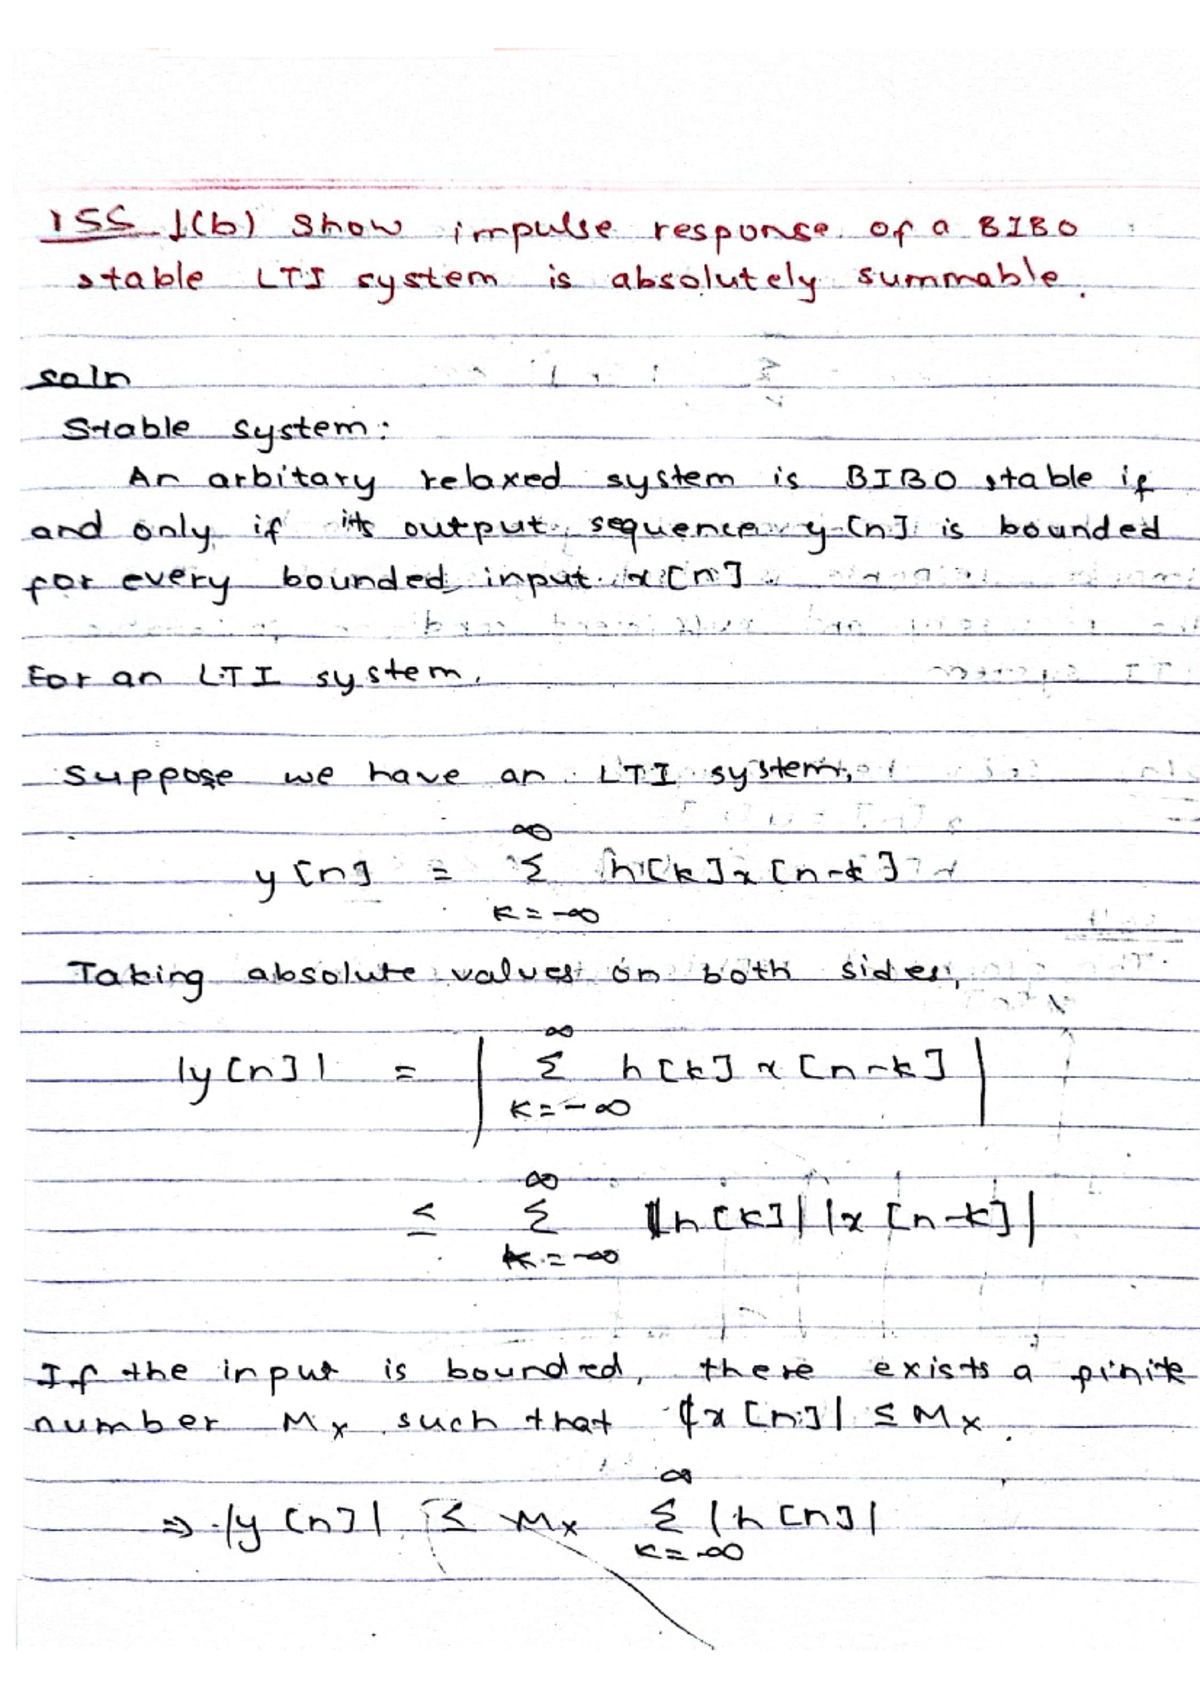 ISS 1(b) Show impulse response of a BIBO
stable LTI system is absolutely summable.
soln
Stable system:
An arbitary relaxed system is BIBO stable if
and only if its output sequence y[n] is bounded
for every bounded input x[n].
For an LTI system,
Suppose we have an LTI system,
y[n] = ∞ Σ k=-∞ h[k]x[n-k]
Taking absolute values on both sides,
|y[n]| = | ∞ Σ k=-∞ h[k] x[n-k] |
≤ ∞ Σ k=-∞ |h[k]| |x[n-k]|
If the input is bounded, there exists a finite
number Mx such that |x[n]| ≤ Mx.
⇒ |y[n]| ≤ Mx ∞ Σ k=-∞ |h[n]|